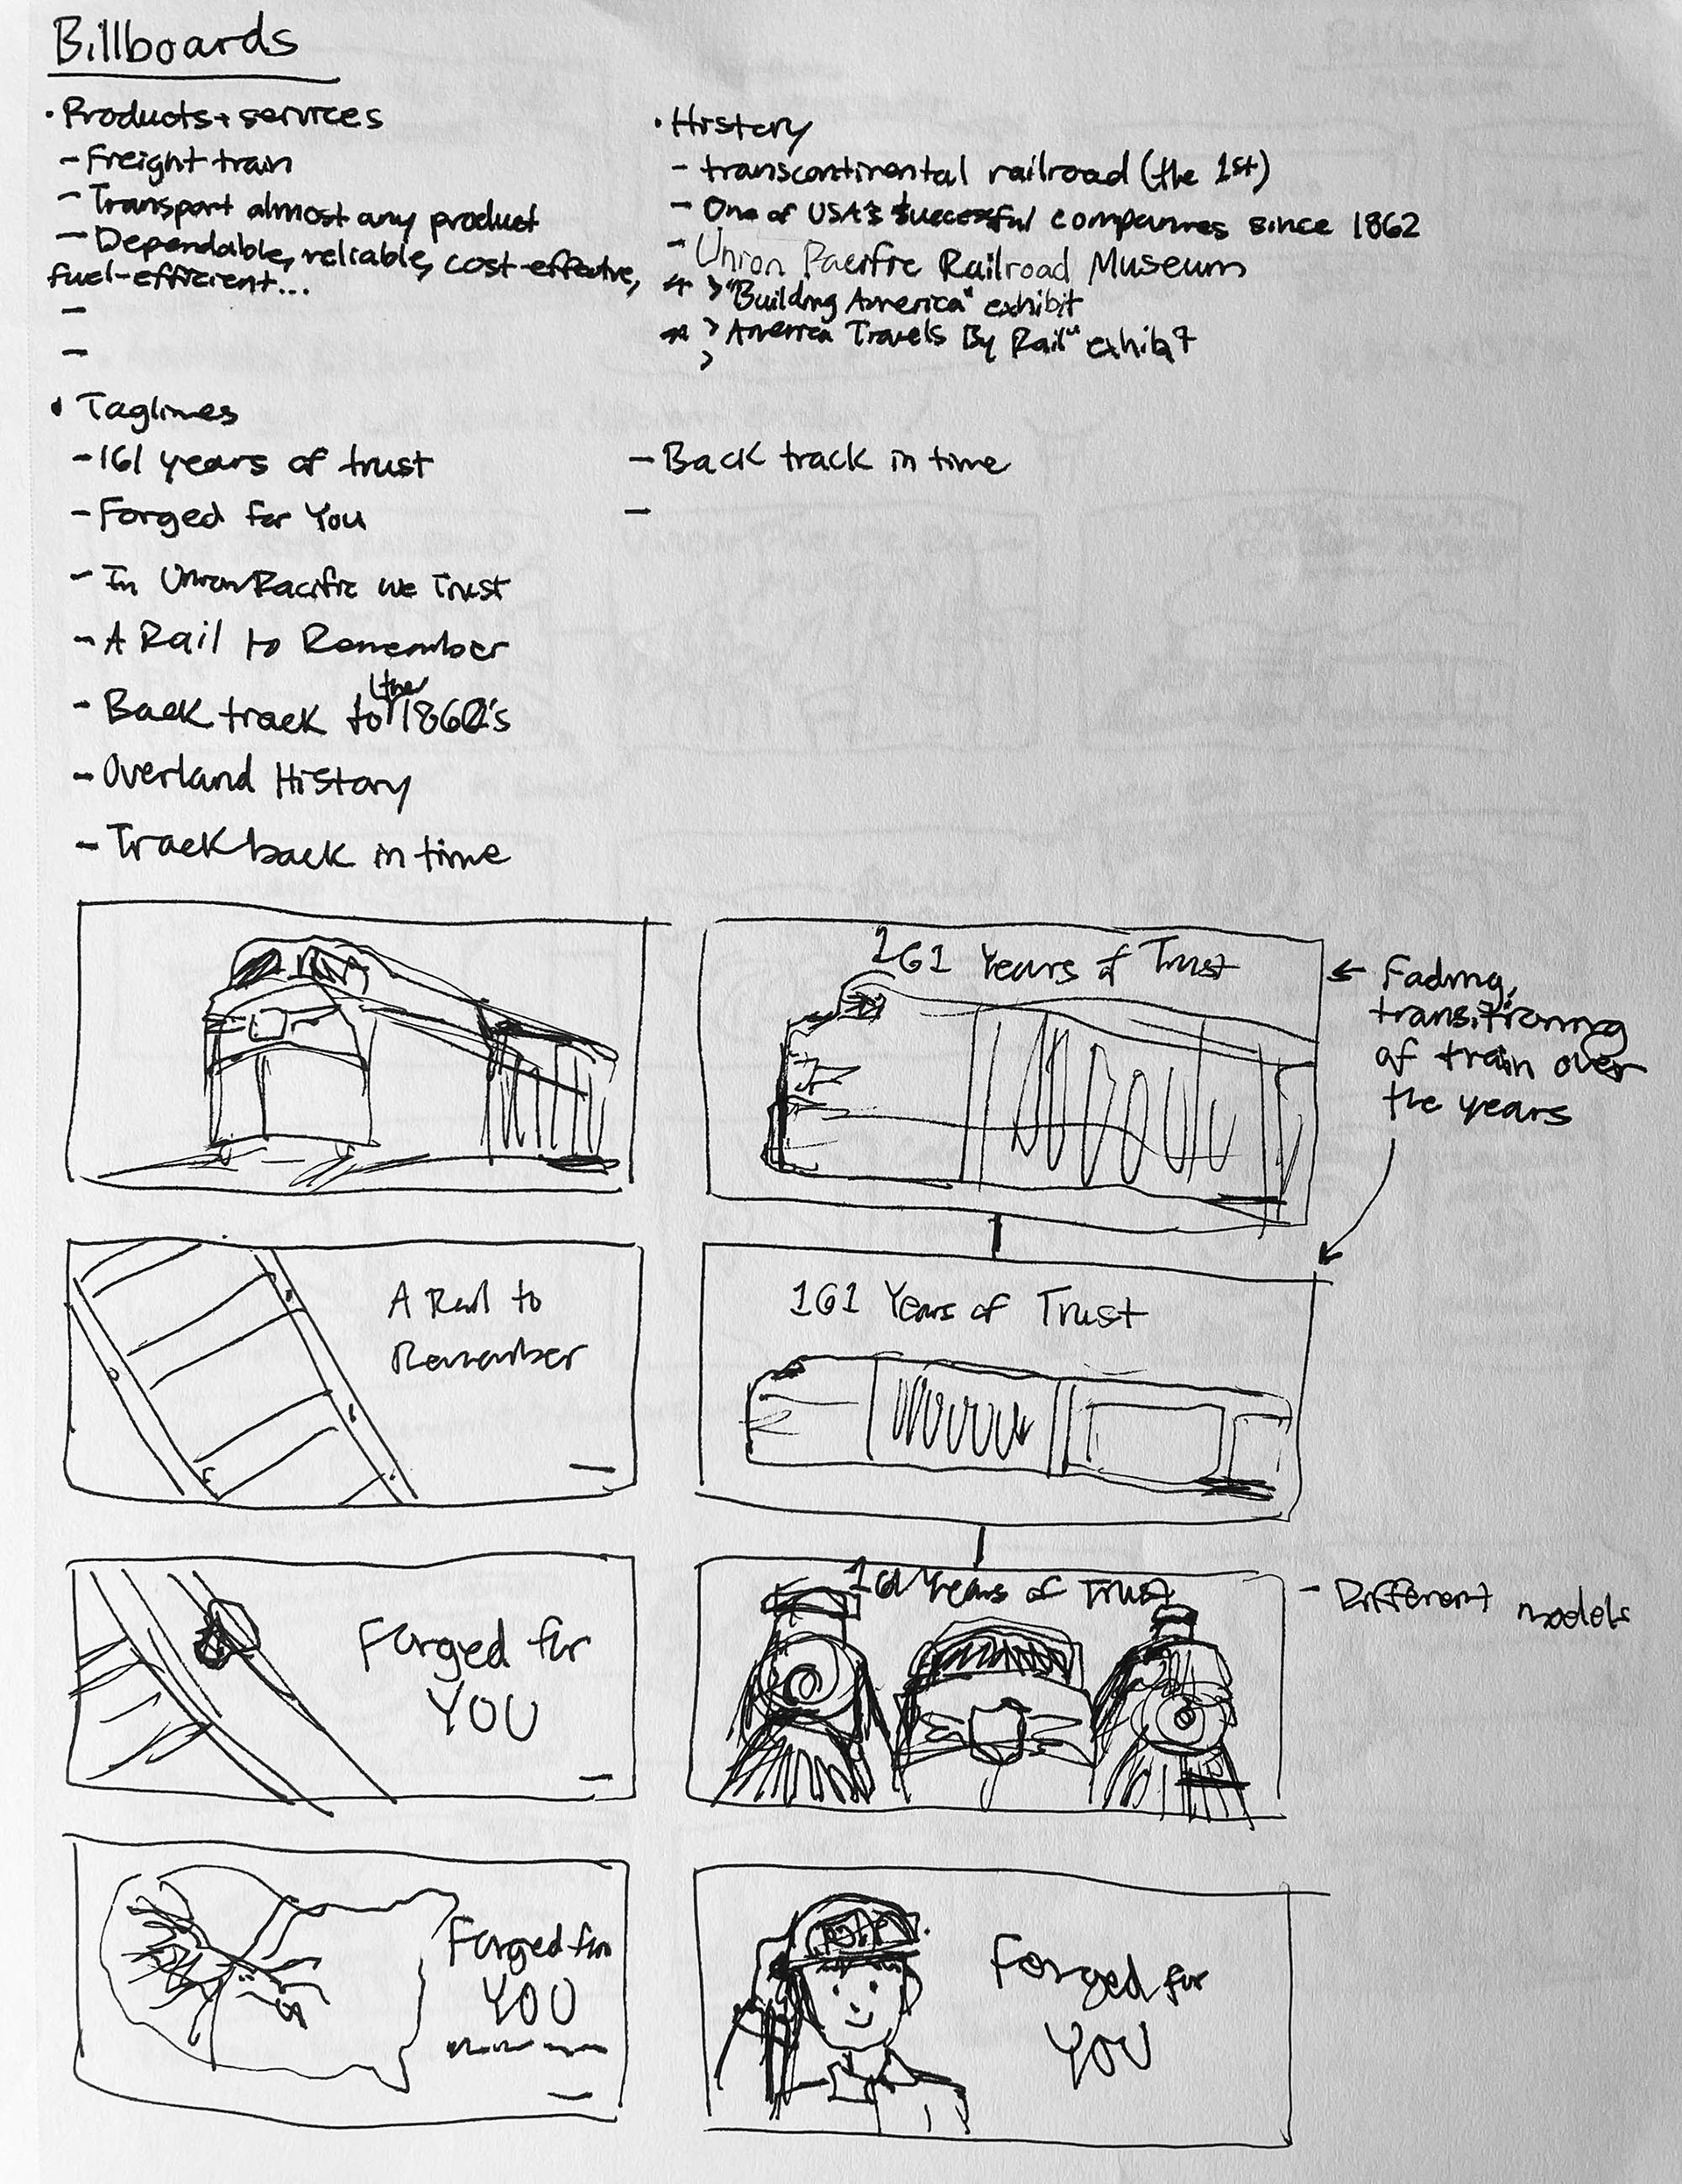 Billboards
• Products + services
- Freight train
- Transport almost any product
- Dependable, reliable, cost-effective,
fuel-efficient...
-
-
• History
- transcontinental railroad (the 1st)
- One of USA's successful companies since 1862
- Union Pacific Railroad Museum
> "Building America" exhibit
> America Travels By Rail" exhibit
>
• Taglines
- 161 years of trust
- Forged for You
- In Union Pacific we Trust
- A Rail to Remember
- Back track to the 1860's
- Overland History
- Track back in time
- Back track in time
-
161 Years of Trust
← Fading,
transitioning
of train over
the years
A Rail to
Remember
161 Years of Trust
Forged for
YOU
161 Years of Trust
- Different models
Forged for
YOU
Forged for
YOU